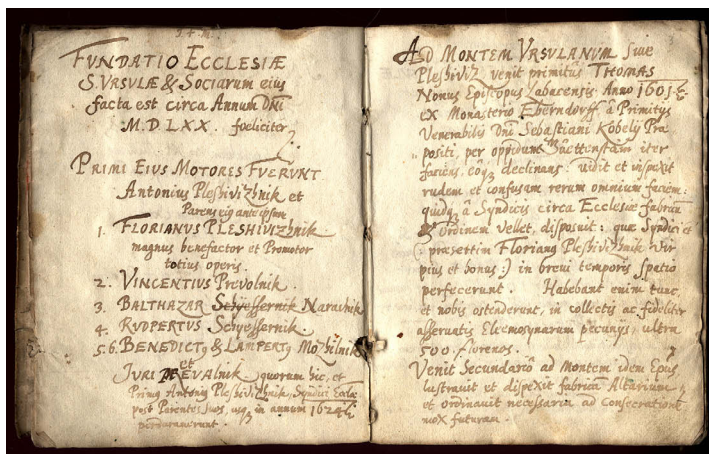 FUNDATIO ECCLESIÆ
S. VRSULÆ & Sociarum eius
facta est circa Annum Dñi
M.D LXX. fœliciter
PRIMI EIUS MOTORES FVERUNT
Antonius Pleshivizhnik et
Parens eius
1. FLORIANUS PLESHIVIZHNIK
magnus benefactor et Promotor
totius operis.
2. VINCENTIUS Prevolnik.
3. BALTHAZAR Schjessernik Narashik
4. RVDPERTUS Schjessernik.
5.6. BENEDICTꝰ & LAMPERTꝰ Mozhilnik
et
JURI PREVALNIK, quorum hic, et
Primus Antonius Pleshivizhnik, Syndici Eccīæ
post Parentes suos, usqꝫ in annum 1624
perdurauerunt.
AD MONTEM VRSULANUM siue
Pleshiviz venit primitus THOMAS
Nonus Episcopus Labacensis Anno 1601
ex Monasterio Eberndorff â Primitijs
Venerabilis Dñi Sebastiani Kobelij Præ
positi, per oppidum
faciens, eôqꝫ declinans: uidit et inspexit
rudem et confusam rerum omnium faciem:
quidqꝫ â Syndicis circa Ecclesiæ fabricã
ordinem vellet, disposuit: quæ Syndici et
(: præsertim Florianꝰ Pleshivizhnik vir
pius et bonus :) in brevi temporis spatio
perfecerunt. Habebant enim tunc,
et nobis ostenderunt, in collectis ac fideliter
asseruatis Eleemosynarum pecunijs, ultra
500. florenos.
Venit Secundariò ad Montem idem Epūs
lustrauit et dispexit fabricã Altarium,
et ordinauit necessaria ad Consecrationẽ
mox futuram.